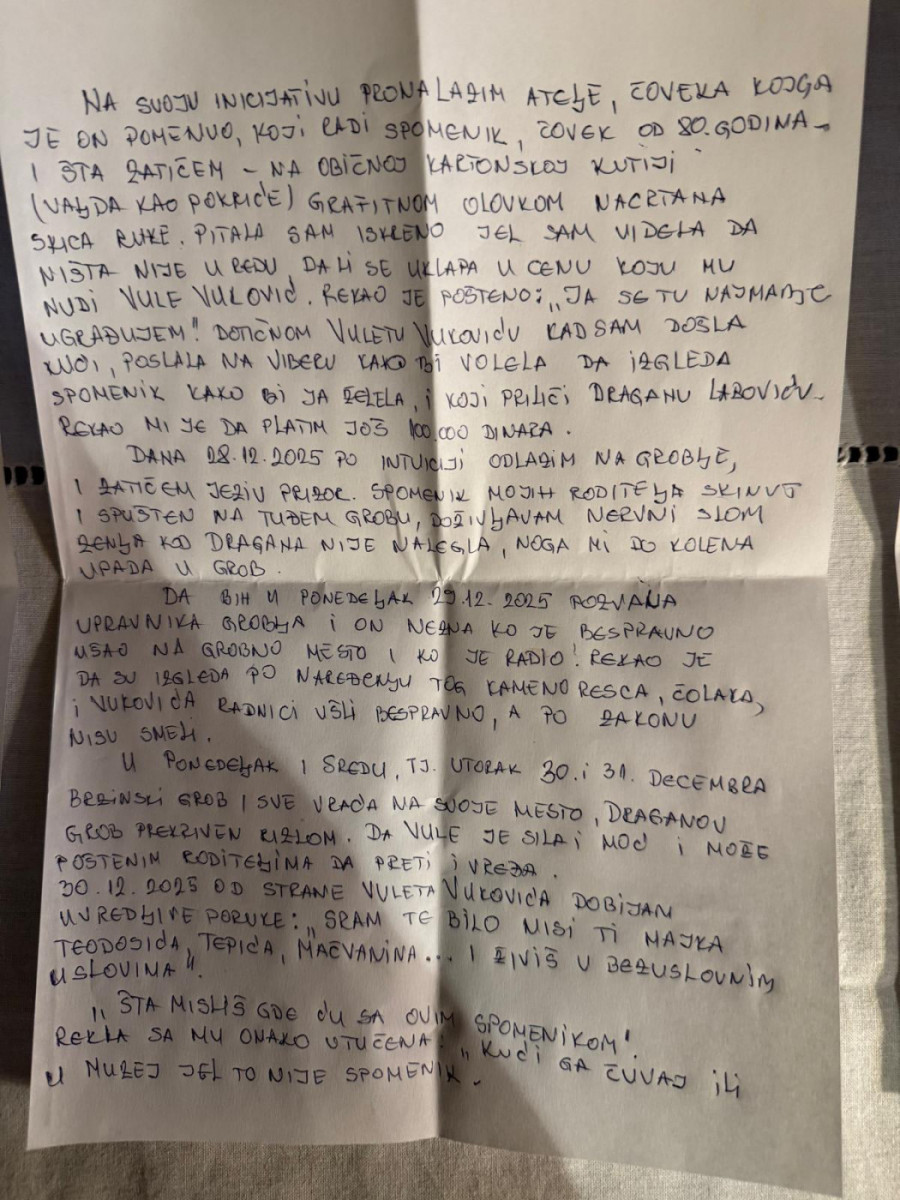 NA SVOJU INICIJATIVU PRONALAZIM ATELJE, ČOVEKA KOJGA
JE ON POMENUO, KOJI RADI SPOMENIK, ČOVEK OD 80. GODINA-
I ŠTA ZATIČEM - NA OBIČNOJ KARTONSKOJ KUTIJI
(VALJDA KAO POKRIĆE) GRAFITNOM OLOVKOM NACRTANA
SKICA RUKE. PITALA SAM ISKRENO JEL SAM VIDELA DA
NIŠTA NIJE U REDU, DA LI SE UKLAPA U CENU KOJU MU
NUDI VULE VUKOVIĆ. REKAO JE POŠTENO: „JA SE TU NAJMANJE
UGRAĐUJEM! DOTIČNOM VULETU VUKOVIĆU KAD SAM DOŠLA
KUĆI, POSLALA NA VIBERU KAKO BI VOLELA DA IZGLEDA
SPOMENIK KAKO BI JA ŽELELA, I KOJI PRILIČI DRAGANU LABOVIĆU-
REKAO MI JE DA PLATIM JOŠ 100,000 DINARA.
DANA 28.12.2025 PO INTUICIJI ODLAZIM NA GROBLJE,
I ZATIČEM JEZIV PRIZOR. SPOMENIK MOJIH RODITELJA SKINUT
I SPUŠTEN NA TUĐEM GROBU, DOŽIVLJAVAM NERVNI SLOM
ZEMLJA KOD DRAGANA NIJE NALEGLA, NOGA MI DO KOLENA
UPADA U GROB.
DA BIH U PONEDELJAK 29.12.2025 POZVALA
UPRAVNIKA GROBLJA I ON NEZNA KO JE BESPRAVNO
UŠAO NA GROBNO MESTO I KO JE RADIO! REKAO JE
DA SU IZGLEDA PO NAREĐENJU TOG KAMENORESCA, ČOLAKA,
I VUKOVIĆA RADNICI UŠLI BESPRAVNO, A PO ZAKONU
NISU SMELI.
U PONEDELJAK I SREDU, TJ. UTORAK 30. I 31. DECEMBRA
BRZINSKI GROB I SVE VRAĆA NA SVOJE MESTO, DRAGANOV
GROB PREKRIVEN RIZLOM. DA VULE JE SILA I MOĆ I MOŽE
POŠTENIM RODITELJIMA DA PRETI I VREĐA.
30.12.2025 OD STRANE VULETA VUKOVIĆA DOBIJAM
UVREDLJIVE PORUKE: „SRAM TE BILO NISI TI MAJKA
TEODOSIĆA, TEPIĆA, MAČVANINA... I ŽIVIŠ U BEZUSLOVNIM
USLOVIMA".
„ŠTA MISLIŠ GDE ĆU SA OVIM SPOMENIKOM!
REKLA SA MU ONAKO UTUČENA: „KUĆI GA ČUVAJ ILI
U MUZEJ JEL TO NIJE SPOMENIK.